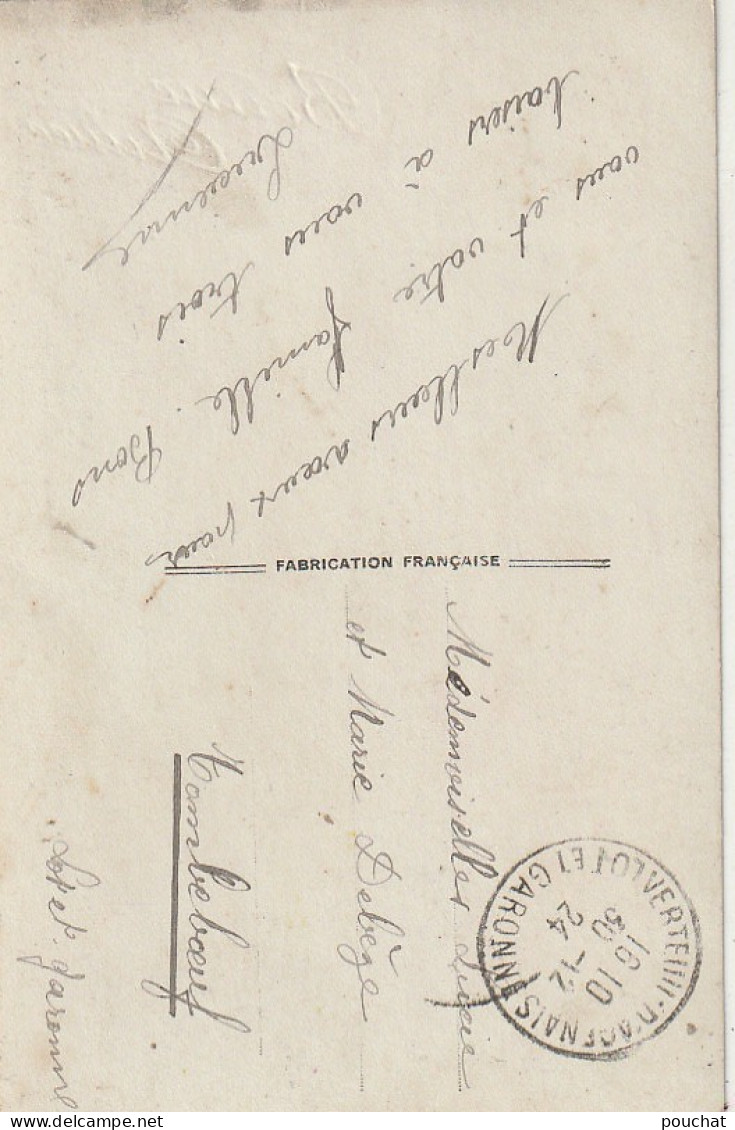 Meilleurs vœux pour
vous et votre famille. Bons
baisers à vous trois
FABRICATION FRANÇAISE
Médemoiselles Lucie
et Marie Delbège
Tombebœuf
Lot et Garonne
LAVERTE D'AGENAIS
LOT ET GARONNE
16 10
24 -12
30
pouchat